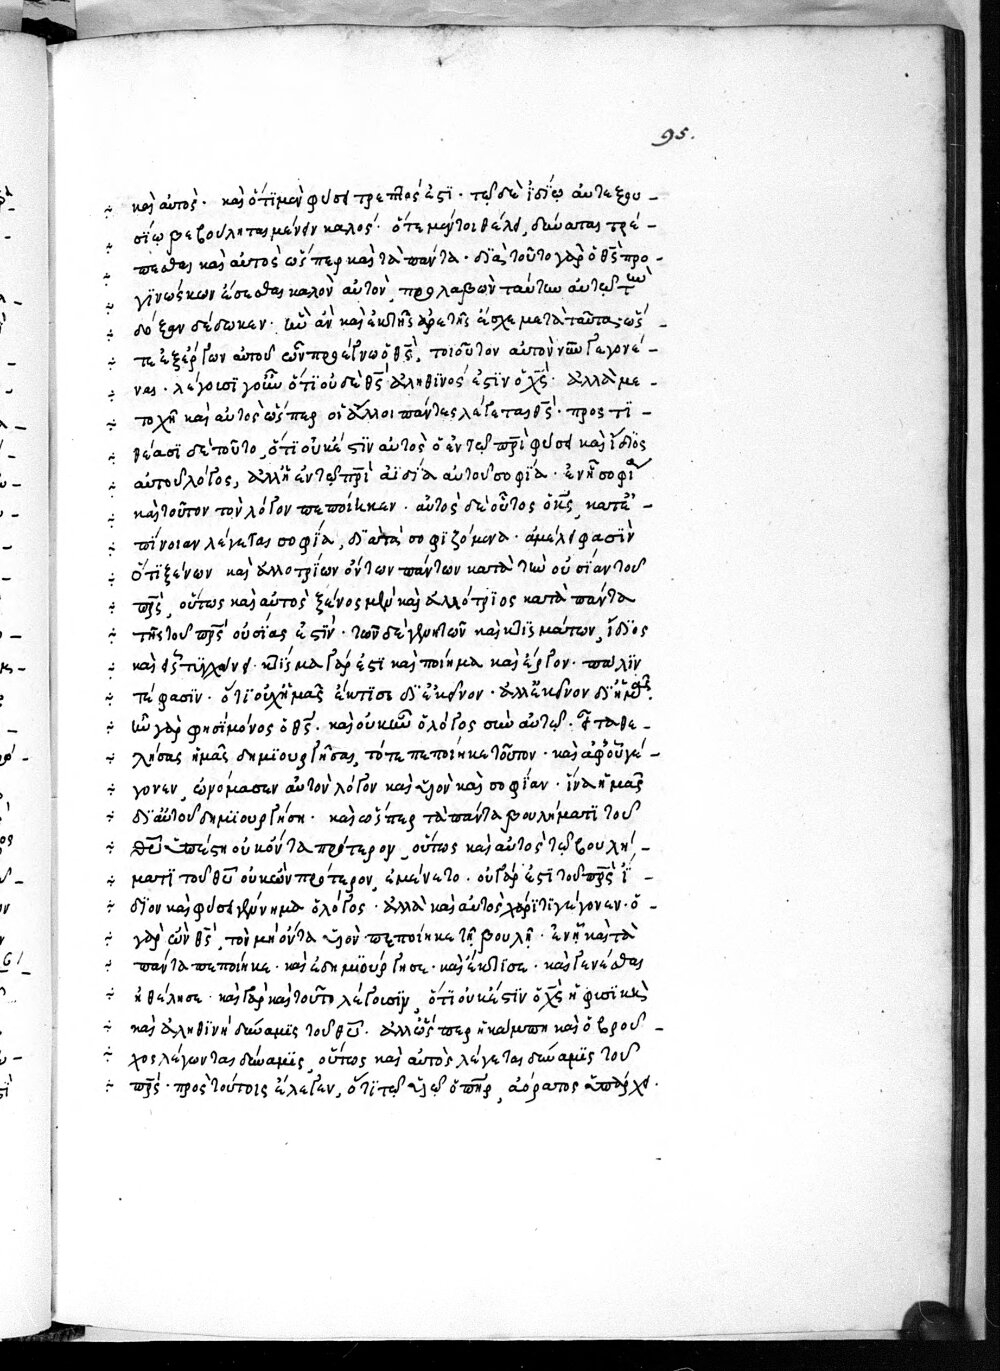 95.
καὶ αὐτὸς· καὶ ὅτι μὲν φύσει τρεπτός ἐστι· τῷ δὲ ἰδίῳ αὐτεξου-
σίῳ βεβούληται μένειν καλός· ὅτε μέντοι θέλει, δύναται τρέ-
πεσθαι καὶ αὐτὸς ὥσπερ καὶ τὰ πάντα· διὰ τοῦτο γὰρ ὁ θς προ-
γινώσκων ἔσεσθαι καλὸν αὐτόν, προλαβὼν ταύτην αὐτῷ τὴν
δόξαν δέδωκεν· ἣν ἂν καὶ ἐκ τῆς ἀρετῆς ἔσχε μετὰ ταῦτα· ὥσ-
τε ἐξ ἔργων αὐτοῦ ὧν προέγνω ὁ θς, τοιοῦτον αὐτὸν νῦν γεγονέ-
ναι· λέγουσι γοῦν ὅτι οὐδὲ θς ἀληθινός ἐστιν ὁ χς· ἀλλὰ με-
τοχῇ καὶ αὐτὸς ὥσπερ οἱ ἄλλοι πάντες λέγεται θς· προστι-
θέασι δὲ τοῦτο, ὅτι οὐκ ἔστιν αὐτὸς ὁ ἐν τῷ πρι φύσει καὶ ἴδιος
αὐτοῦ λόγος, ἀλλ' ἡ ἐν τῷ πρι ἀϊδία αὐτοῦ σοφία· ἐν ᾗ σοφίᾳ
καὶ τοῦτον τὸν λόγον πεποίηκεν· αὐτὸς δὲ οὗτος ὁ κς, κατ' ἐ-
πίνοιαν λέγεται σοφία, διὰ τὰ σοφιζόμενα· ἀμέλει φασὶν
ὅτι ξένων καὶ ἀλλοτρίων ὄντων πάντων κατὰ τὴν οὐσίαν τοῦ
πρς, οὕτως καὶ αὐτὸς ξένος μὲν καὶ ἀλλότριος κατὰ πάντα
τῆς τοῦ πρς οὐσίας ἐστίν· τῶν δὲ γενητῶν καὶ κτισμάτων, ἴδιος
καὶ εἷς τυγχάνει· κτίσμα γάρ ἐστι καὶ ποίημα καὶ ἔργον· πάλιν
τέ φασιν· ὅτι οὐχ ἡμᾶς ἔκτισε δι' ἐκεῖνον· ἀλλ' ἐκεῖνον δι' ἡμᾶς.
ἦν γὰρ φησὶ μόνος ὁ θς· καὶ οὐκ ἦν ὁ λόγος σὺν αὐτῷ· εἶτα θε-
λήσας ἡμᾶς δημιουργῆσαι, τότε πεποίηκε τοῦτον· καὶ ἀφ' οὗ γέ-
γονεν, ὠνόμασεν αὐτὸν λόγον καὶ υἱὸν καὶ σοφίαν· ἵνα ἡμᾶς
δι' αὐτοῦ δημιουργήσῃ· καὶ ὥσπερ τὰ πάντα βουλήματι τοῦ
θυ ὑπέστη οὐκ ὄντα πρότερον, οὕτως καὶ αὐτὸς τῷ βουλή-
ματι τοῦ θυ οὐκ ὢν πρότερον, ἐγένετο· οὐ γάρ ἐστι τοῦ πρς ἴ-
διον καὶ φύσει γέννημα ὁ λόγος· ἀλλὰ καὶ αὐτὸς χάριτι γέγονεν· ὁ
γὰρ ὢν θς, τὸν μὴ ὄντα υἱὸν πεποίηκε τῇ βουλῇ· ἐν ᾗ καὶ τὰ
πάντα πεποίηκε· καὶ ἐδημιούργησε· καὶ ἔκτισε· καὶ γενέσθαι
ἠθέλησε· καὶ γὰρ καὶ τοῦτο λέγουσιν, ὅτι οὐκ ἔστιν ὁ χς ἡ φυσικὴ
καὶ ἀληθινὴ δύναμις τοῦ θυ· ἀλλ' ὥσπερ ἡ κάμπη καὶ ὁ βροῦ-
χος λέγονται δύναμις, οὕτως καὶ αὐτὸς λέγεται δύναμις τοῦ
πρς· πρὸς τούτοις ἔλεγεν, ὅτι τῷ υἱῷ ὁ πηρ, ἀόρατος ὑπάρχει·